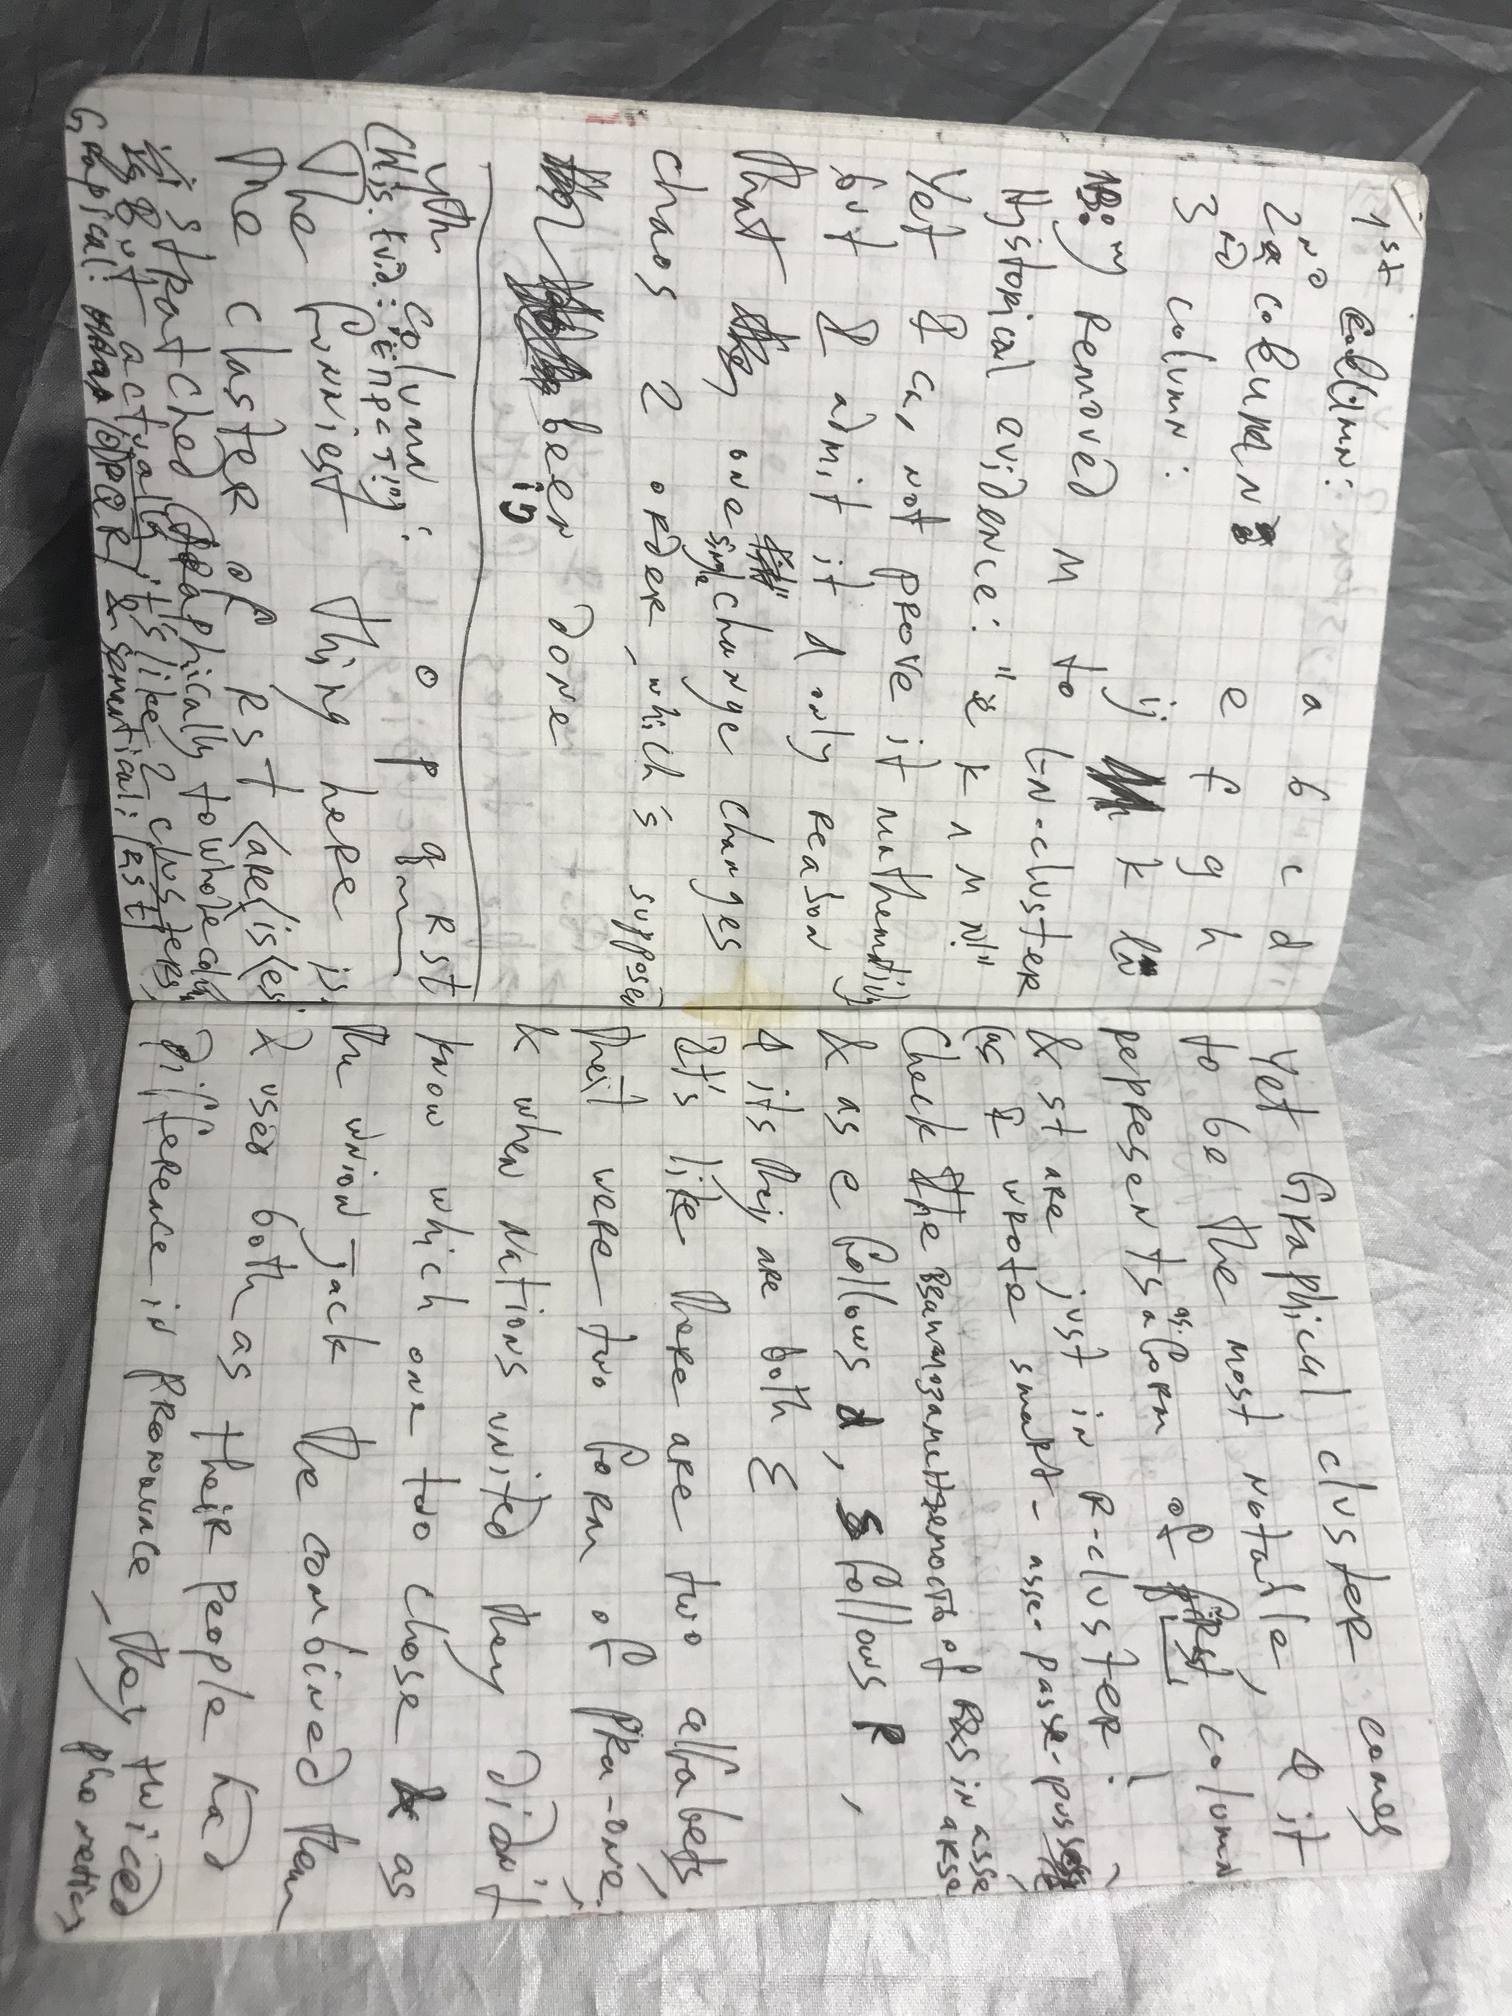 1st column: a b c d
2nd column: e f g h
3 column: ij k ln
By removed M to LN-cluster
Hystorical evidence: "k n m n!"
Yet I can not prove it mathematicly
but I admit it 1 only reason
that one single change changes
chaos 2 order, which's supposed
been done
column: o p q RST
The funniest thing here is
The claster of RST (are(is(es
stratched graphically to whole column
But actually it's like 2 clusters,
Graphical: (OPQR) & semantical: (RST)
Yet Graphical cluster comes
to be the most notable, & it
represents as a form of first column
& st are just in R-cluster!
(as I wrote smart-asse-passe-pusse
Check the взаимозаменяемость of R&S in asse, arse
& as e follows d, s follows R,
& its they are both Σ
It's like there are two alfabets,
their were two form of pra-one,
& when nations united they didn't
know which one too chose & as
the union jack the combined them
& used both as their people had
difference in pronounce, they twiced
phonetics